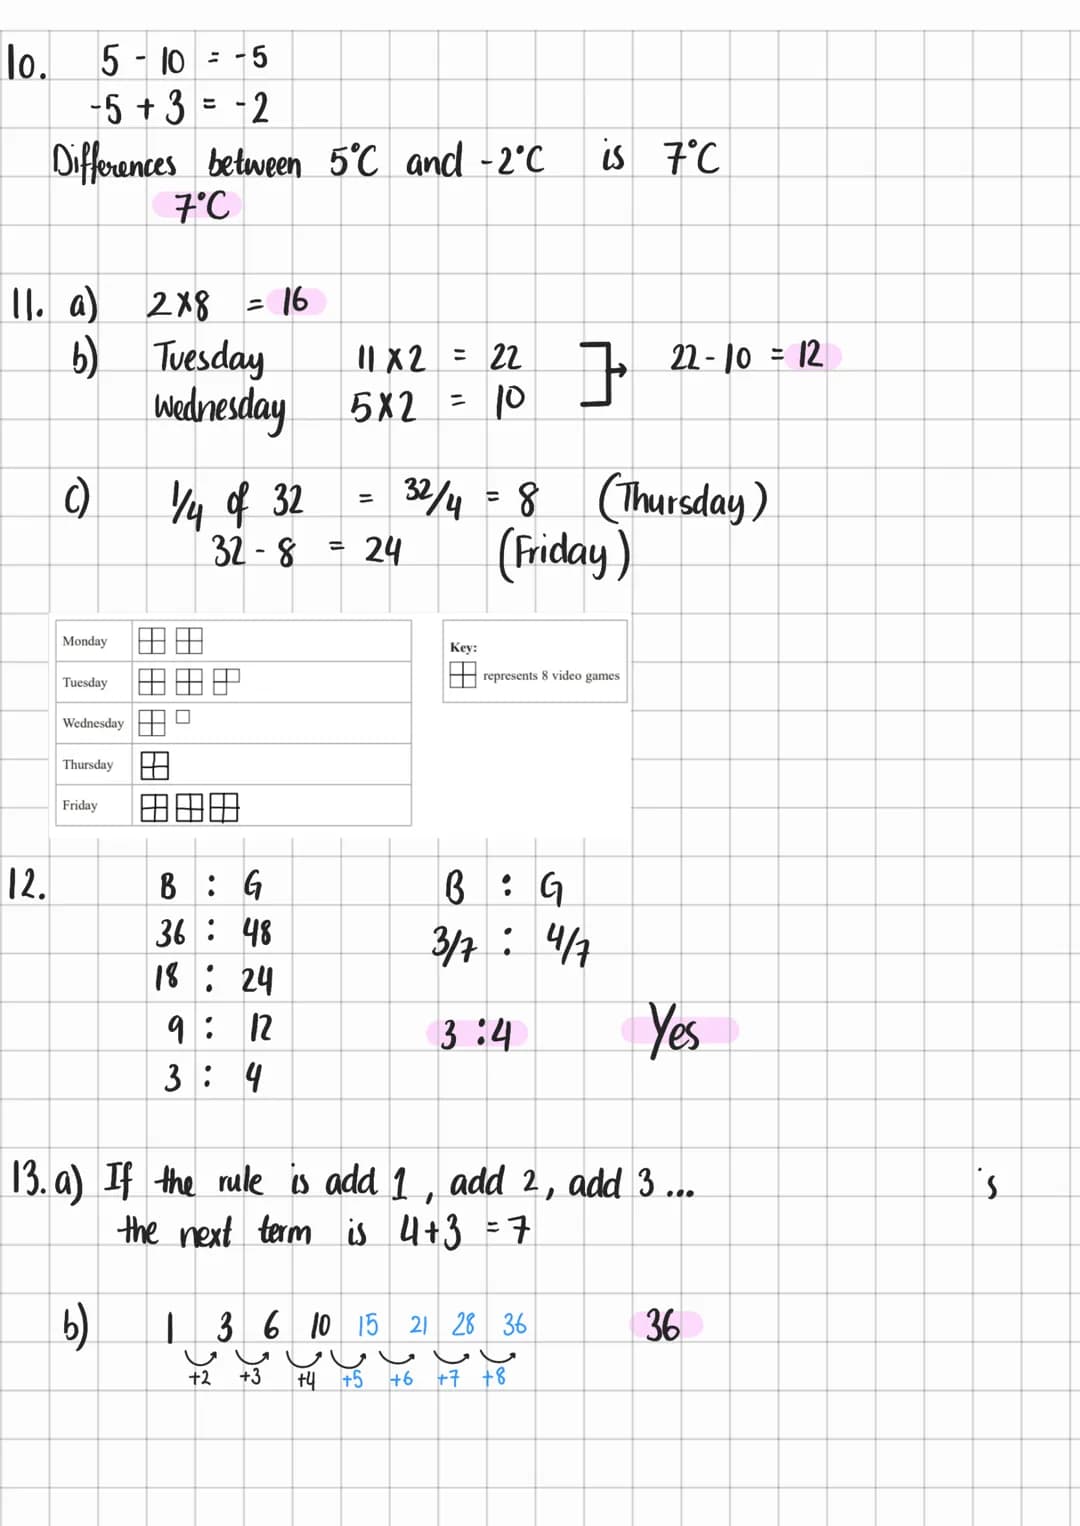 10. 5 - 10 = -5
-5 + 3 = -2
Differences between 5°C and -2°C is 7°C
7°C
11. a) 2×8 = 16
b) Tuesday 11 × 2 = 22 22 - 10 = 12
Wednesday 5×2 = 10
c) 1/4 of 32 = 32/4 = 8 (Thursday)
32 - 8 = 24 (Friday)
Monday
Tuesday
Wednesday
Thursday
Friday
Key:
represents 8 video games
12. B : G B : G
36 : 48 3/7 : 4/7
18 : 24
9 : 12 3 : 4 Yes
3 : 4
13. a) If the rule is add 1, add 2, add 3 ... is
the next term is 4+3 = 7
b) 1 3 6 10 15 21 28 36 36
+2 +3 +4 +5 +6 +7 +8